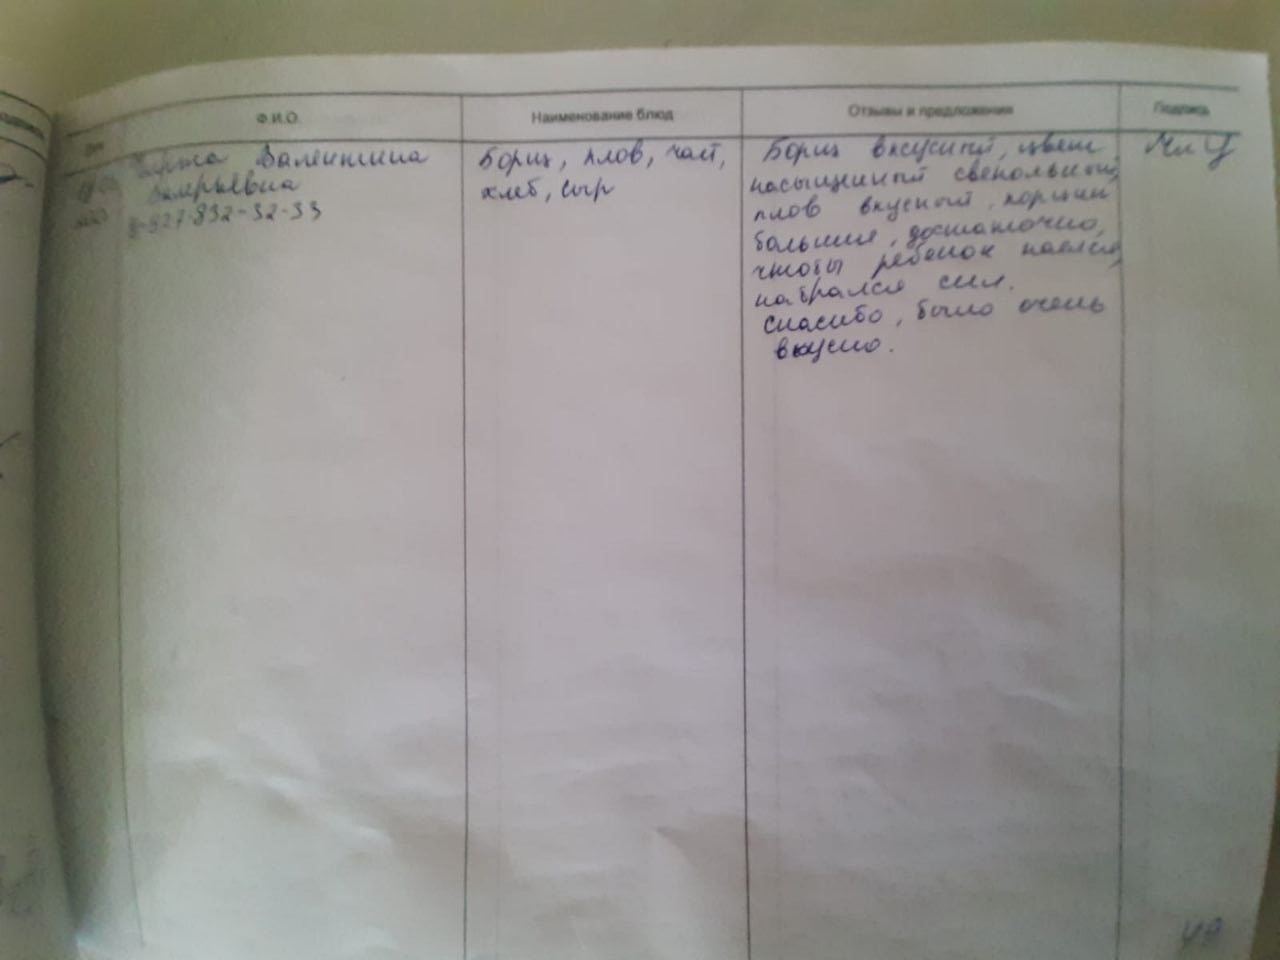 Ф.И.О.
Наименование блюд
Отзывы и предложения
Подпись
Валентина
Валерьевна
8-927-832-32-33
Борщ, плов, чай,
хлеб, сыр
Борщ вкусный, цвет
насыщенный свекольный,
плов вкусный, порции
большие, достаточно,
чтобы ребенок наелся,
набрался сил.
Спасибо, было очень
вкусно.
49